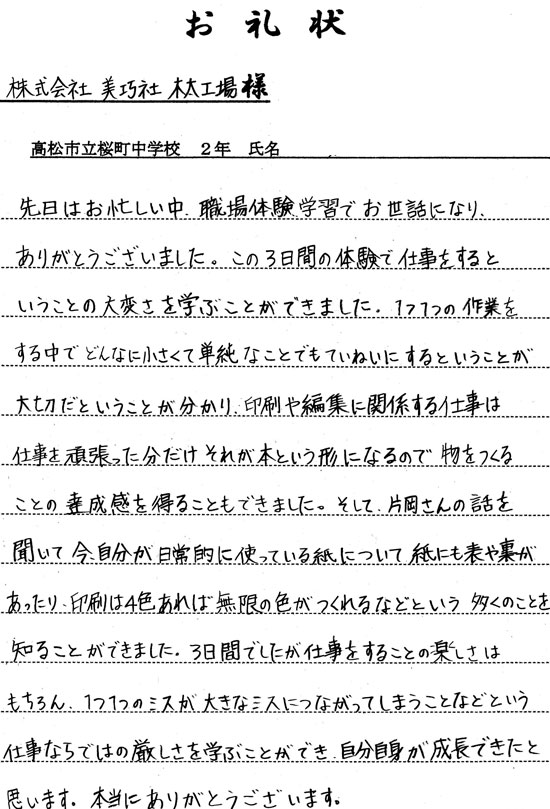 お礼状
株式会社 美巧社 木太工場 様
高松市立桜町中学校 2年 氏名
先日はお忙しい中、職場体験学習でお世話になり、
ありがとうございました。この3日間の体験で仕事をすると
いうことの大変さを学ぶことができました。1つ1つの作業を
する中でどんなに小さくて単純なことでもていねいにするということが
大切だということが分かり、印刷や編集に関係する仕事は
仕事を頑張った分だけそれが本という形になるので物をつくる
ことの達成感を得ることもできました。そして、片岡さんの話を
聞いて今、自分が日常的に使っている紙について紙にも表や裏が
あったり、印刷は4色あれば無限の色がつくれるなどという多くのことを
知ることができました。3日間でしたが仕事をすることの楽しさは
もちろん、1つ1つのミスが大きなミスにつながってしまうことなどという
仕事ならではの厳しさを学ぶことができ、自分自身が成長できたと
思います。本当にありがとうございます。